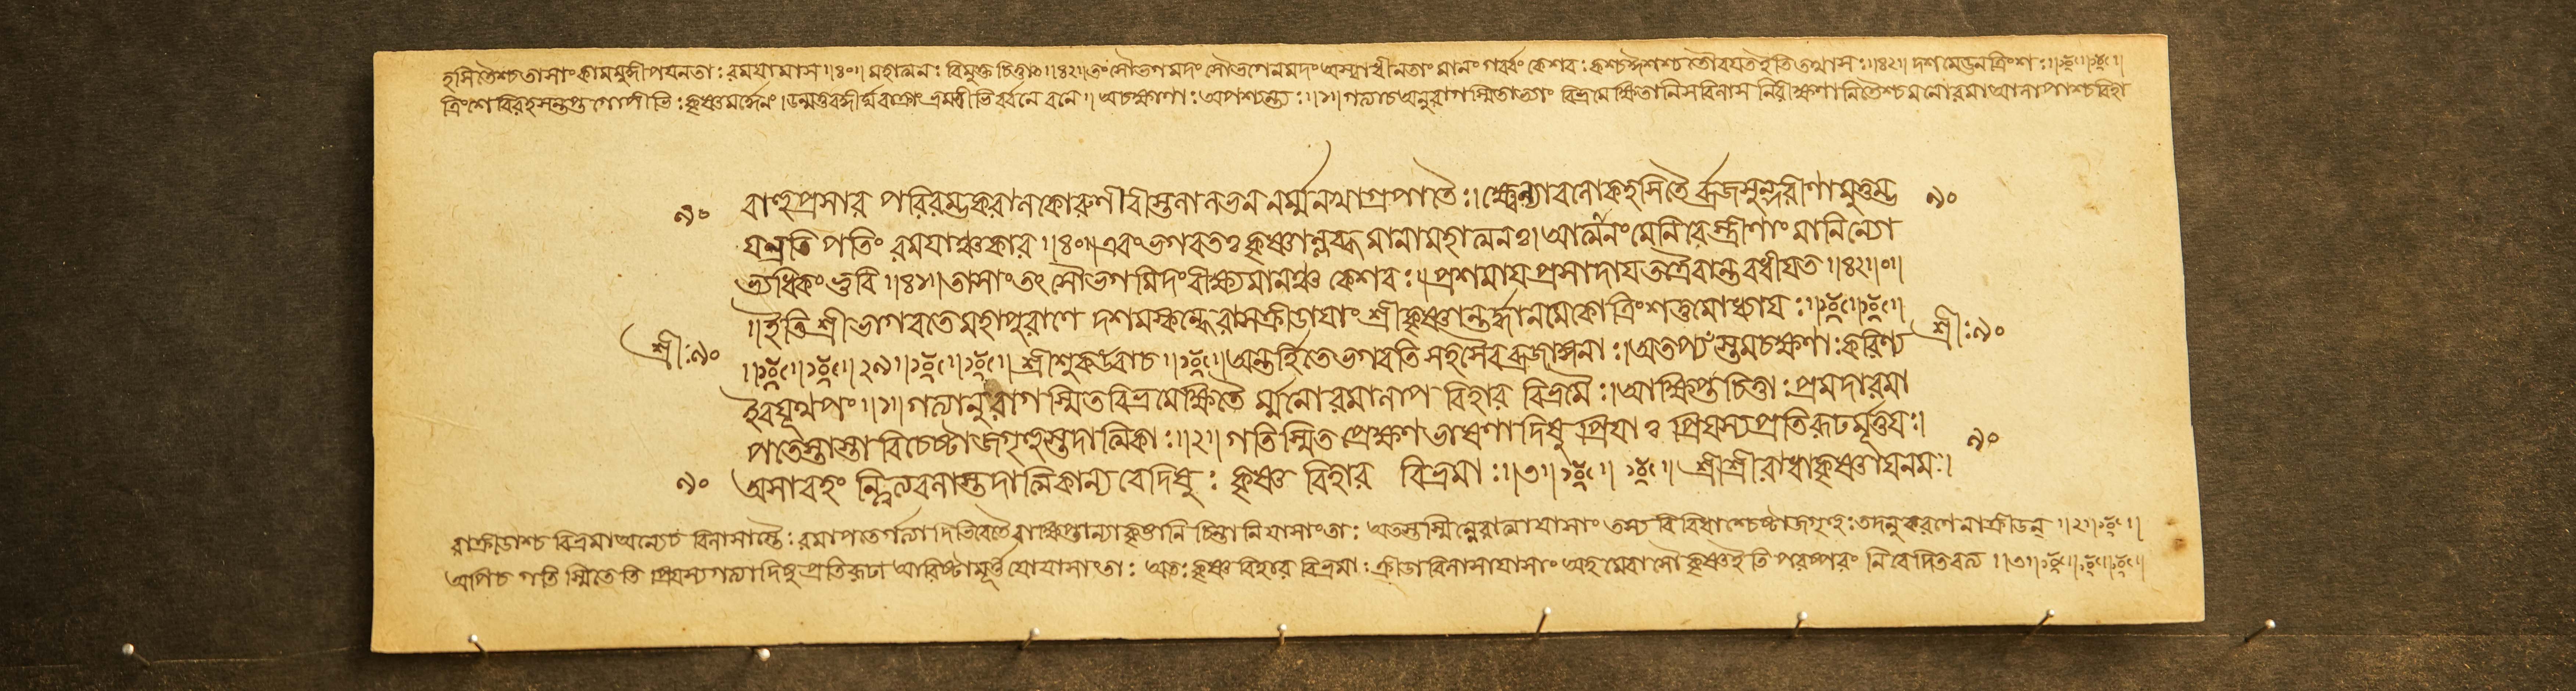 হসিতৈশ্চ তাসাং কামমুদ্দীপযনতা: রময়ামাস ৷৷৪০৷৷ মহাত্মন: বিমুক্ত চিত্তাৎ ৷৷৪১৷৷ তং সৌভগমদং সৌভগেনমদং অস্বাধীনতাং মানং গর্ব্বং কেশব: কশ্চঈশশ্চ তৌবযতইতি তথাস: ৷৷৪২৷৷ দশমেঊনত্রিংশ: ৷৷
ত্রিংশে বিরহসন্তপ্ত গোপীভি: কৃষ্ণমার্গনং ৷ উন্মত্তবদ্দীর্ঘ ভ্রমন্তীভির্ব্বনে বনে ৷৷ অচক্ষাণা: অপশ্যন্ত্য: ৷৷১৷৷ গত্যাচ অনুরাগস্মিতাভ্যাং বিভ্রমেক্ষিতানি সবিলাস নিরীক্ষণানি তৈশ্চ মনোরমা আলাপাশ্চ বিহা
৯০ বাহুপ্রসার পরিরম্ভকরালকোরুণীবীস্তনালভন নর্ম্মনখাগ্রপাতৈ: ৷ ক্ষ্বেল্যাবলোকহসিতৈ র্ব্রজসুন্দরীণামুত্তম্ভ ৯০
যন্রতি পতিং রময়াঞ্চকার ৷৷৪০৷৷ এবং ভগবতঃ কৃষ্ণাল্লব্ধমানামহাত্মনঃ ৷ আত্মানং মেনিরেস্ত্রীণাং মানিন্যো
ভ্যধিকং ভুবি ৷৷৪১৷৷ তাসাং তৎ সৌভগমদং বীক্ষ্যমানঞ্চ কেশব: ৷ প্রশমায প্রসাদায তত্রৈবান্তরধীযত ৷৷৪২৷৷০৷৷
৷৷ ইতি শ্রীভাগবতেমহাপুরাণে দশমস্কন্ধেরাসক্রীডাযাং শ্রীকৃষ্ণান্তর্দ্ধানমেকোত্রিংশত্তমোধ্যায: ৷৷
শ্রী: ৯০ ৷৷২৯৷৷ শ্রীশুকউবাচ ৷৷ অন্তর্হিতে ভগবতি সহসৈবব্রজাঙ্গনা: ৷ অতপ্যংস্তমচক্ষাণা: করিণ্য শ্রী: ৯০
ইবযূথপং ৷৷১৷৷ গত্যানুরাগস্মিতবিভ্রমেক্ষিতৈ র্ম্মনোরমালাপ বিহার বিভ্রমৈ: ৷ আক্ষিপ্তচিত্তা: প্রমদারমা
পতেস্তাস্তা বিচেষ্টাজগৃহুস্তদাত্মিকা: ৷৷২৷৷ গতিস্মিত প্রেক্ষণভাষণাদিষু প্রিযাঃ প্রিযস্যপ্রতিরূঢমূর্ত্তয: ৷ ৯০
৯০ অসাবহং ন্ত্বিত্যবলাস্তদাত্মিকান্যবেদিষু: কৃষ্ণ বিহার বিভ্রমা: ৷৷৩৷৷ শ্রীশ্রীরাধাকৃষ্ণাযনম: ৷
রাক্রীডাশ্চ বিভ্রমাঅন্যেচ বিলাসাস্তৈ: রমাপতের্গত্যাদিভিরেতৈরাক্ষিপ্তান্যাকৃষ্টানি চিত্তানি যাসাংতা: অতস্তস্মিন্নেবাত্মাযাসাং তস্য বিবিধাশ্চেষ্টাজগৃহু: তদনুকরণেনাক্রীডন্ ৷৷২৷৷
অপিচ গতি স্মিতেতি প্রিযস্যগত্যাদিষু প্রতিরূঢা আবিষ্টামূর্ত্তযোযাসাংতা: অত: কৃষ্ণ বিহার বিভ্রমা: ক্রীডাবিলাসাযাসাং অহমেবাসৌ কৃষ্ণইতি পরস্পরং নিবেদিতবত্য ৷৷৩৷৷